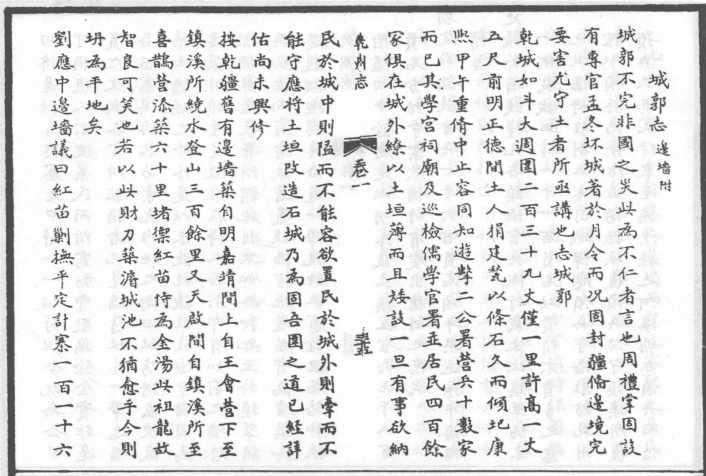 城郭志 邊墻附
城郭不完非國之災此為不仁者言也周禮掌固設
有專官孟冬坏城著於月令而况固封疆備邊境完
要害尤守土者所亟講也志城郭
乾城如斗大週圍二百三十九丈僅一里許高一丈
五尺前明正德間土人捐建甃以條石久而傾圮康
熙甲午重脩中止容同知遊擊二公署營兵十數家
而已其學宮祠廟及巡檢儒學官署並居民四百餘
家俱在城外繚以土垣薄而且矮設一旦有事欲納
乾州志 卷一
民於城中則隘而不能容欲置民於城外則牽而不
能守應將土垣改造石城乃為固吾圉之道已經詳
估尚未興修
按乾疆舊有邊墻築自明嘉靖間上自王會營下至
鎮溪所繞水登山三百餘里又天啟間自鎮溪所至
喜鵲營添築六十里堵禦紅苗恃為金湯此祖龍故
智良可笑也若以此財力築濬城池不猶愈乎今則
坍為平地矣
劉應中邊墻議曰紅苗剿撫平定計寨一百一十六